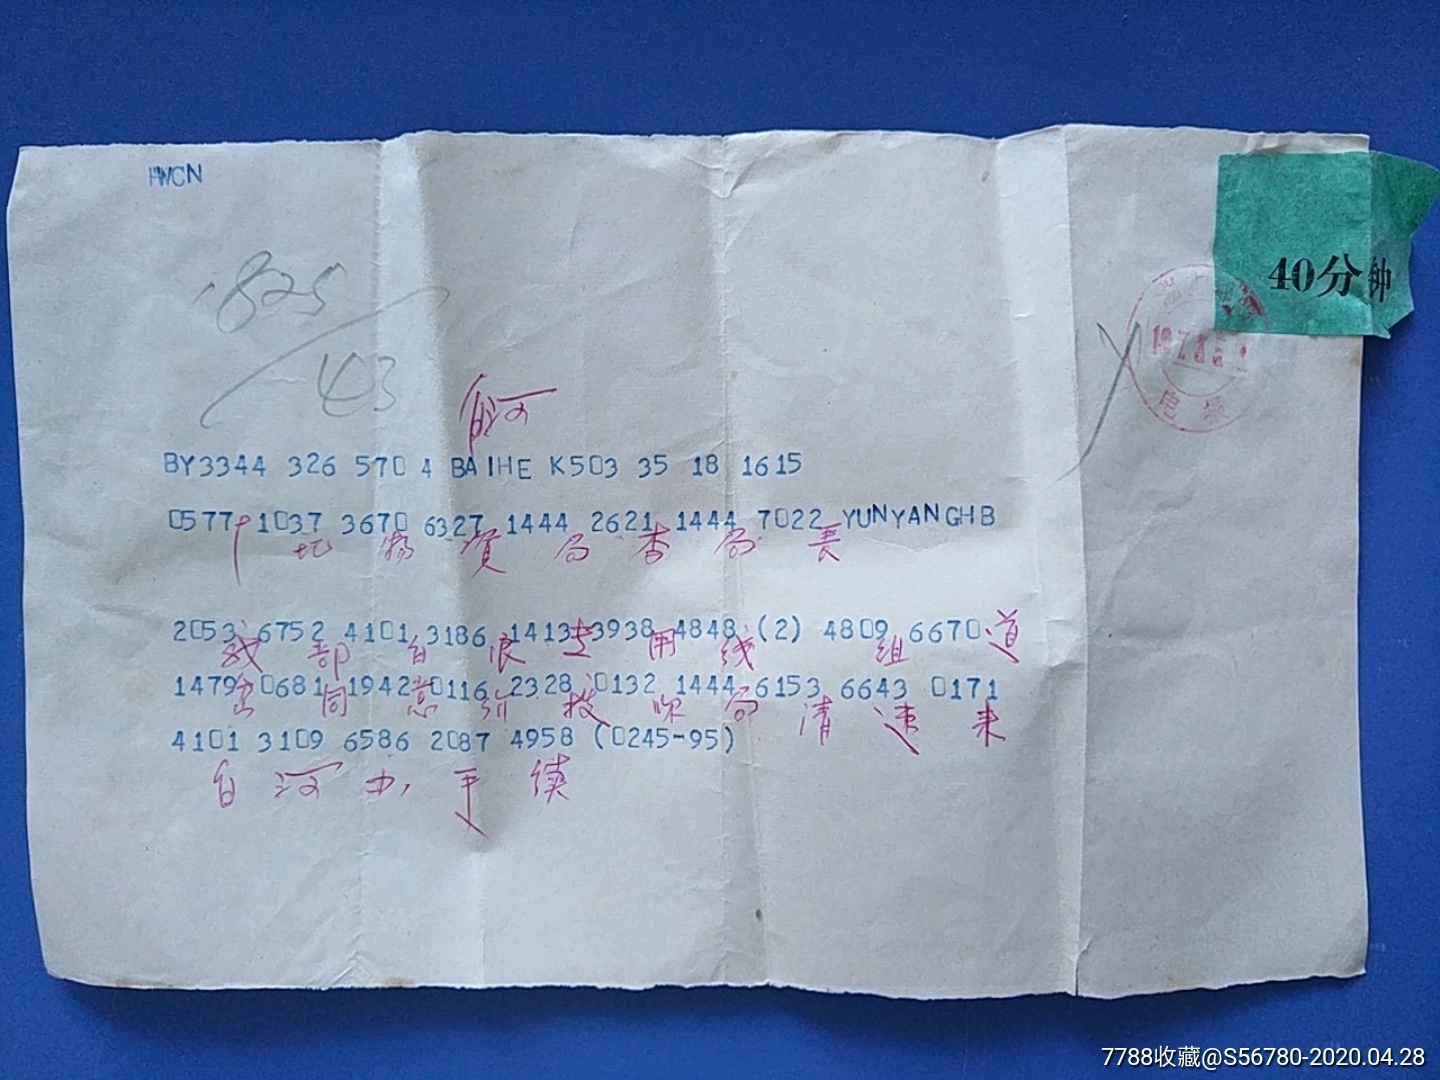 HWCN
40分钟
1825
43
白河
BY3344 326 5704 BAIHE K503 35 18 1615
0577 1037 3670 6327 1444 2621 1444 7022 YUNYANGHB
十 堰 物 资 局 李 局 长
2053 6752 4101 3186 1413 3938 4848 (2) 4809 6670
我 部 白 浪 专 用 线 组 道
1479 0681 1942 0116 2328 0132 1444 6153 6643 0171
岔 同 意 价 拨 你 局 请 速 来
4101 3109 6586 2087 4958 (0245-95)
白 河 办 手 续
电 报
7788收藏@S56780-2020.04.28